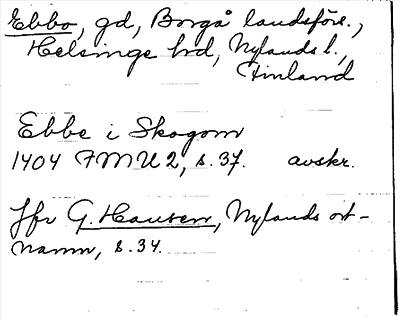 Ebbo, gd, Borgå landsförs.,
Helsinge hrd, Nylands l.,
Finland
Ebbe i Skogom
1404 FMU 2, s. 37. avskr.
Jfr G. Hausen, Nylands ort-
namn, s. 34.